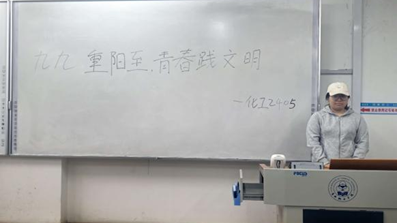 九九 重阳至，青春践文明
—化工2405